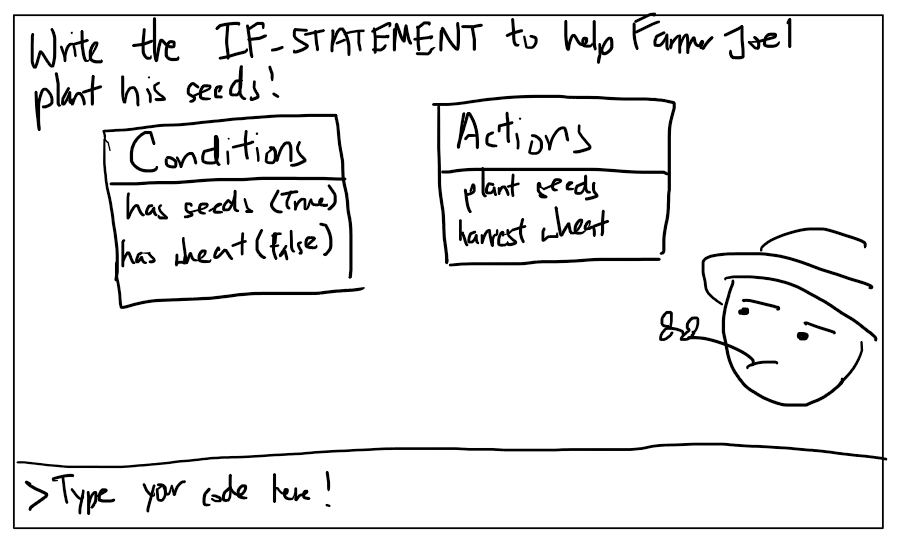 Write the IF-STATEMENT to help Farmer Joel
plant his seeds!
Conditions
has seeds (True)
has wheat (False)
Actions
plant seeds
harvest wheat
>Type your code here!